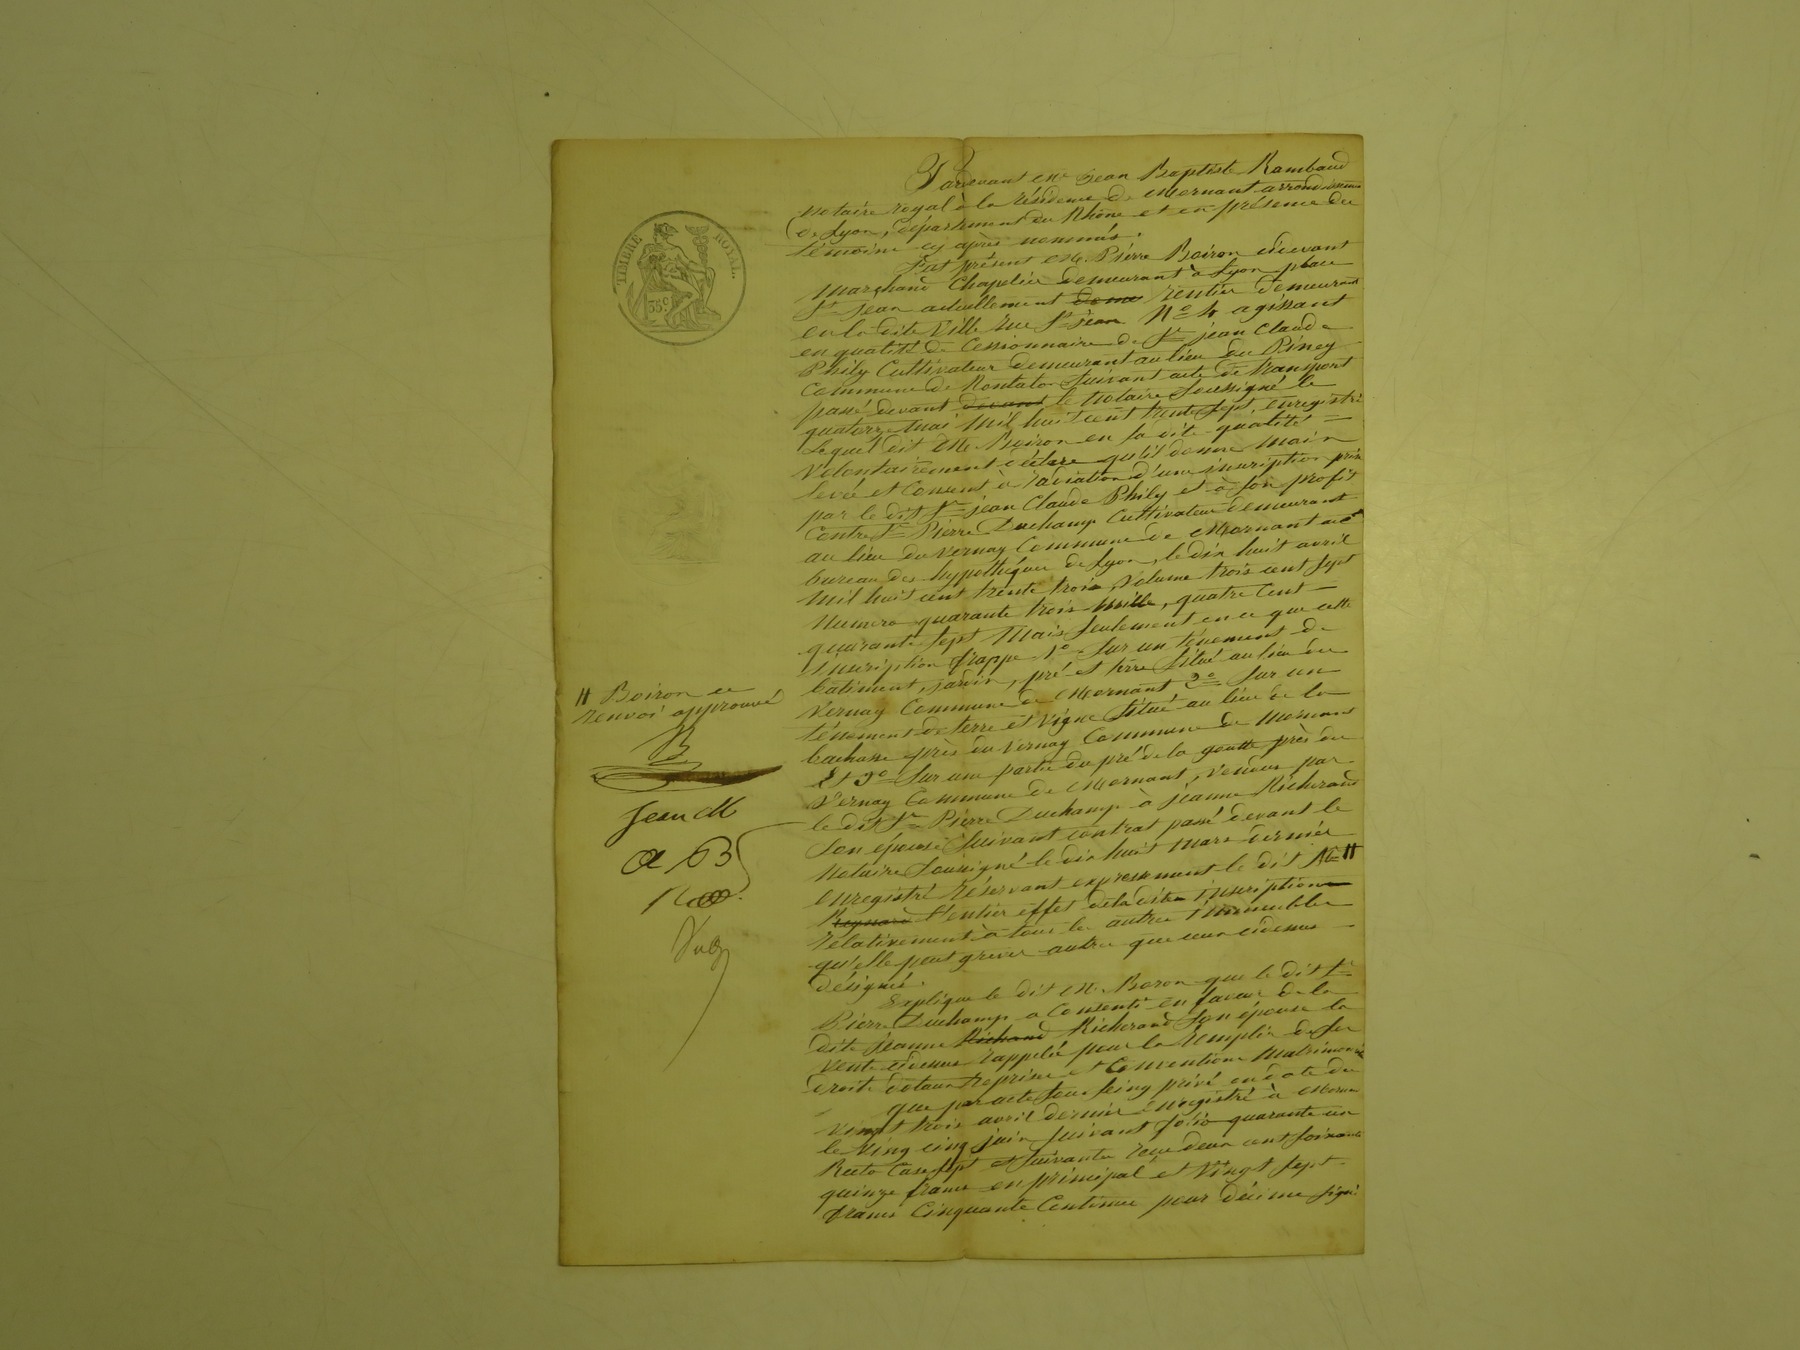 TIMBRE ROYAL.
35c.
Pardevant Me. jean Baptiste Rambaud
Notaire royal à la résidence de Mornant arrondissem
de Lyon, département du Rhône et en présence des
témoins cy après nommés.
Fut présent M. Pierre Boiron cidevant
Marchand Chapelier demeurant à Lyon place
St jean actuellement deme rentier demeurant
en la dite Ville rue St jean No 4 agissant
en qualité de Cessionnaire de Sr jean Claude
Phily Cultivateur demeurant au lieu du Piney
Commune de Rontalon Suivant acte de transport
passé devant devant le Notaire Soussigné le
quatorze Mai Mil huit cent trente Sept, enregistré
Lequel dit M. Boiron en sa dite qualité
Volontairement déclare qu'il donne Main
levée et Consent à radiation d'une inscription prise
par le dit Sr jean Claude Phily et à Son profit
Contre Sr Pierre Duchamp Cultivateur demeurant
au lieu du Vernay Commune de Mornant au
bureau des hypothèques de Lyon, le dix huit avril
Mil huit cent trente trois, Volume trois cent Sept
Numero quarante trois Mille, quatre Cent
quarante Sept Mais Seulement en ce que cette
inscription frappe 1o Sur un tènement de
batiment, jardin, pré et terre Situé au lieu du
Vernay Commune de Mornant 2o Sur un
tènement de terre et Vigne Situé au lieu de la
bachasse près du Vernay Commune de Mornant
Et 3o Sur une partie du pré de la goutte près du
Vernay Commune de Mornant, Vendus par
le dit Sr Pierre Duchamp à jeanne Richerand
Son épouse Suivant contrat passé devant le
Notaire Soussigné le dix huit Mars dernier
enregistré réservant expressement le dit M. //
Reynard l'entier effet de la dite inscription
relativement à tous les autres immeubles
qu'elle peut grever autres que ceux cidessus
désignés.
Explique le dit M. Boron que le dit Sr
Pierre Duchamp a Consenti en faveur de la
dite jeanne Richand Richerand Son épouse la
Vente cidessus rappelée pour la remplir de Ses
droits dotaux reprises et Conventions Matrimonia
que par acte Sous Seing privé en date du
vingt trois avril dernier enregistré à Morna
le Ving cinq juin Suivant folio quarante un
Recto Case Sept et Suivantes reçu deux cent Soixante
quinze francs en principal et Vingt Sept
francs Cinquante Centimes pour décime Signé
// Boiron ce
renvoi approuvé
B
Jean M
B